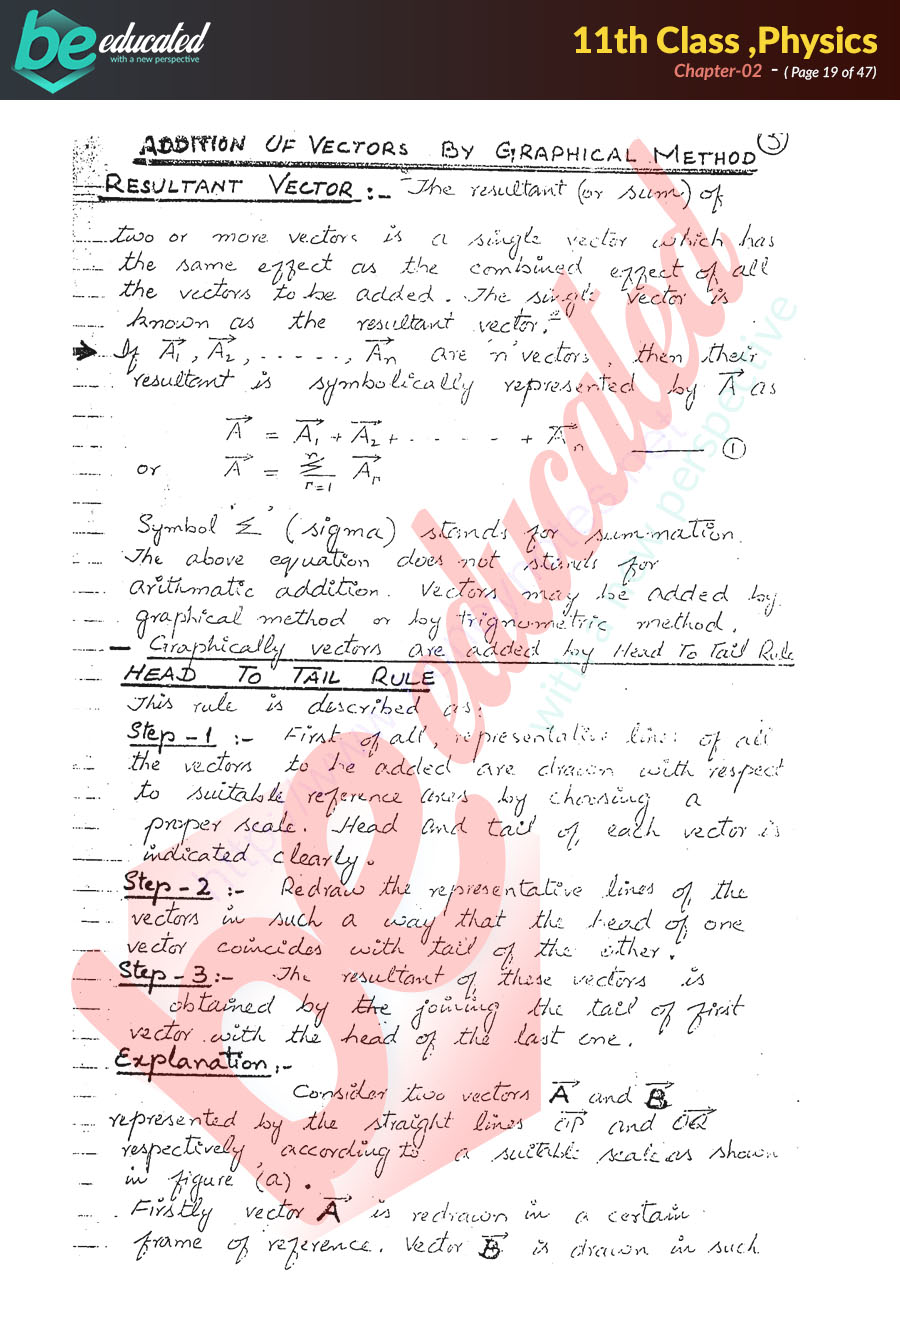 be educated
with a new perspective
11th Class ,Physics
Chapter-02 - ( Page 19 of 47)
ADDITION OF VECTORS BY GRAPHICAL METHOD
RESULTANT VECTOR :- "The resultant (or sum) of
two or more vectors is a single vector which has
the same effect as the combined effect of all
the vectors to be added. The single vector is
known as the resultant vector."
If A₁, A₂, ......, Aₙ are 'n' vectors, then their
resultant is symbolically represented by A as
A = A₁ + A₂ + ...... + Aₙ
①
or A = Σ Aᵣ
n
r=1
Symbol 'Σ' (sigma) stands for summation.
The above equation does not stands for
arithmatic addition. Vectors may be added by
graphical method or by trignometric method.
Graphically vectors are added by Head To Tail Rule
HEAD TO TAIL RULE
This rule is described as:
Step-1 :- First of all, representative lines of all
the vectors to be added are drawn with respect
to suitable reference axes by choosing a
proper scale. Head and tail of each vector is
indicated clearly.
Step-2 :- Redraw the representative lines of the
vectors in such a way that the head of one
vector coincides with tail of the other.
Step-3 :- The resultant of these vectors is
obtained by the joining the tail of first
vector with the head of the last one.
Explanation :-
Consider two vectors A and B
represented by the straight lines OP and OQ
respectively according to a suitable scale as shown
in figure (a).
Firstly vector A is redrawn in a certain
frame of reference. Vector B is drawn in such
be educated
with a new perspective